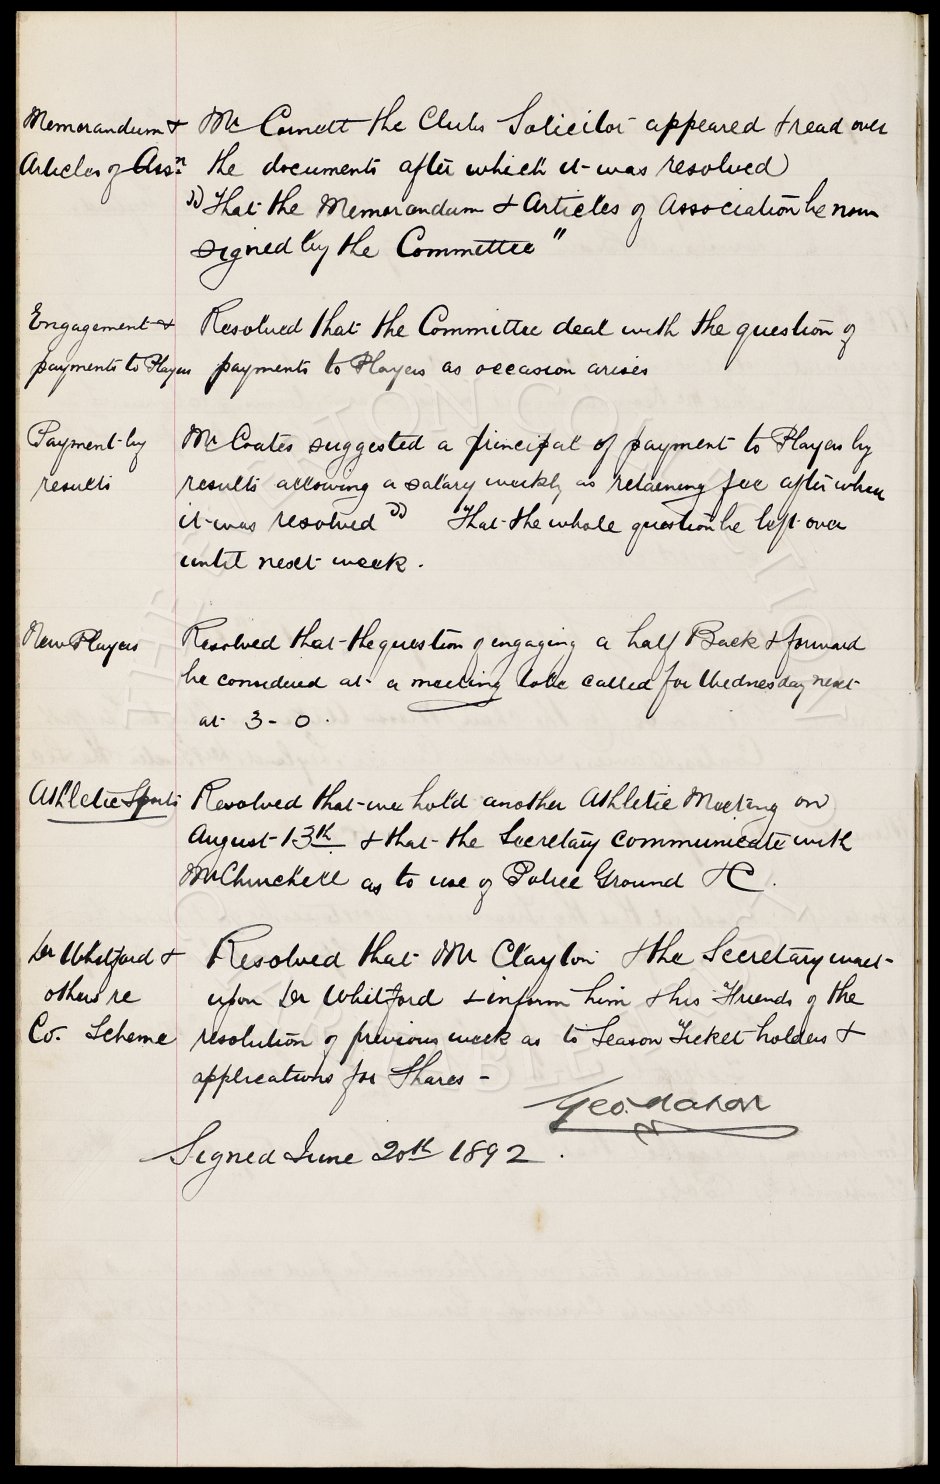 Memorandum & Mr Cornett the Clubs Solicitor appeared & read over
Articles of Assn. the documents after which it was resolved
"That the Memorandum & Articles of Association be now
signed by the Committee"
Engagement & Resolved that the Committee deal with the question of
payments to Players payments to Players as occasion arises
Payment by Mr Coates suggested a principal of payment to Players by
results results allowing a salary weekly as retaining fee after when
it was resolved " That the whole question be left over
until next week.
New Players Resolved that the question of engaging a half Back & forward
be considered at a meeting to be called for Wednesday next
at 3-0.
Athletic Sports Resolved that we hold another Athletic Meeting on
August 13th & that the Secretary communicate with
Mr as to use of Police Ground &c.
Dr Whitford & Resolved that Mr Clayton & the Secretary wait
others re upon Dr Whitford & inform him & his Friends of the
Co. Scheme resolution of previous week as to Season Ticket holders &
applications for Shares -
Geo. Mahon
Signed June 20th 1892.